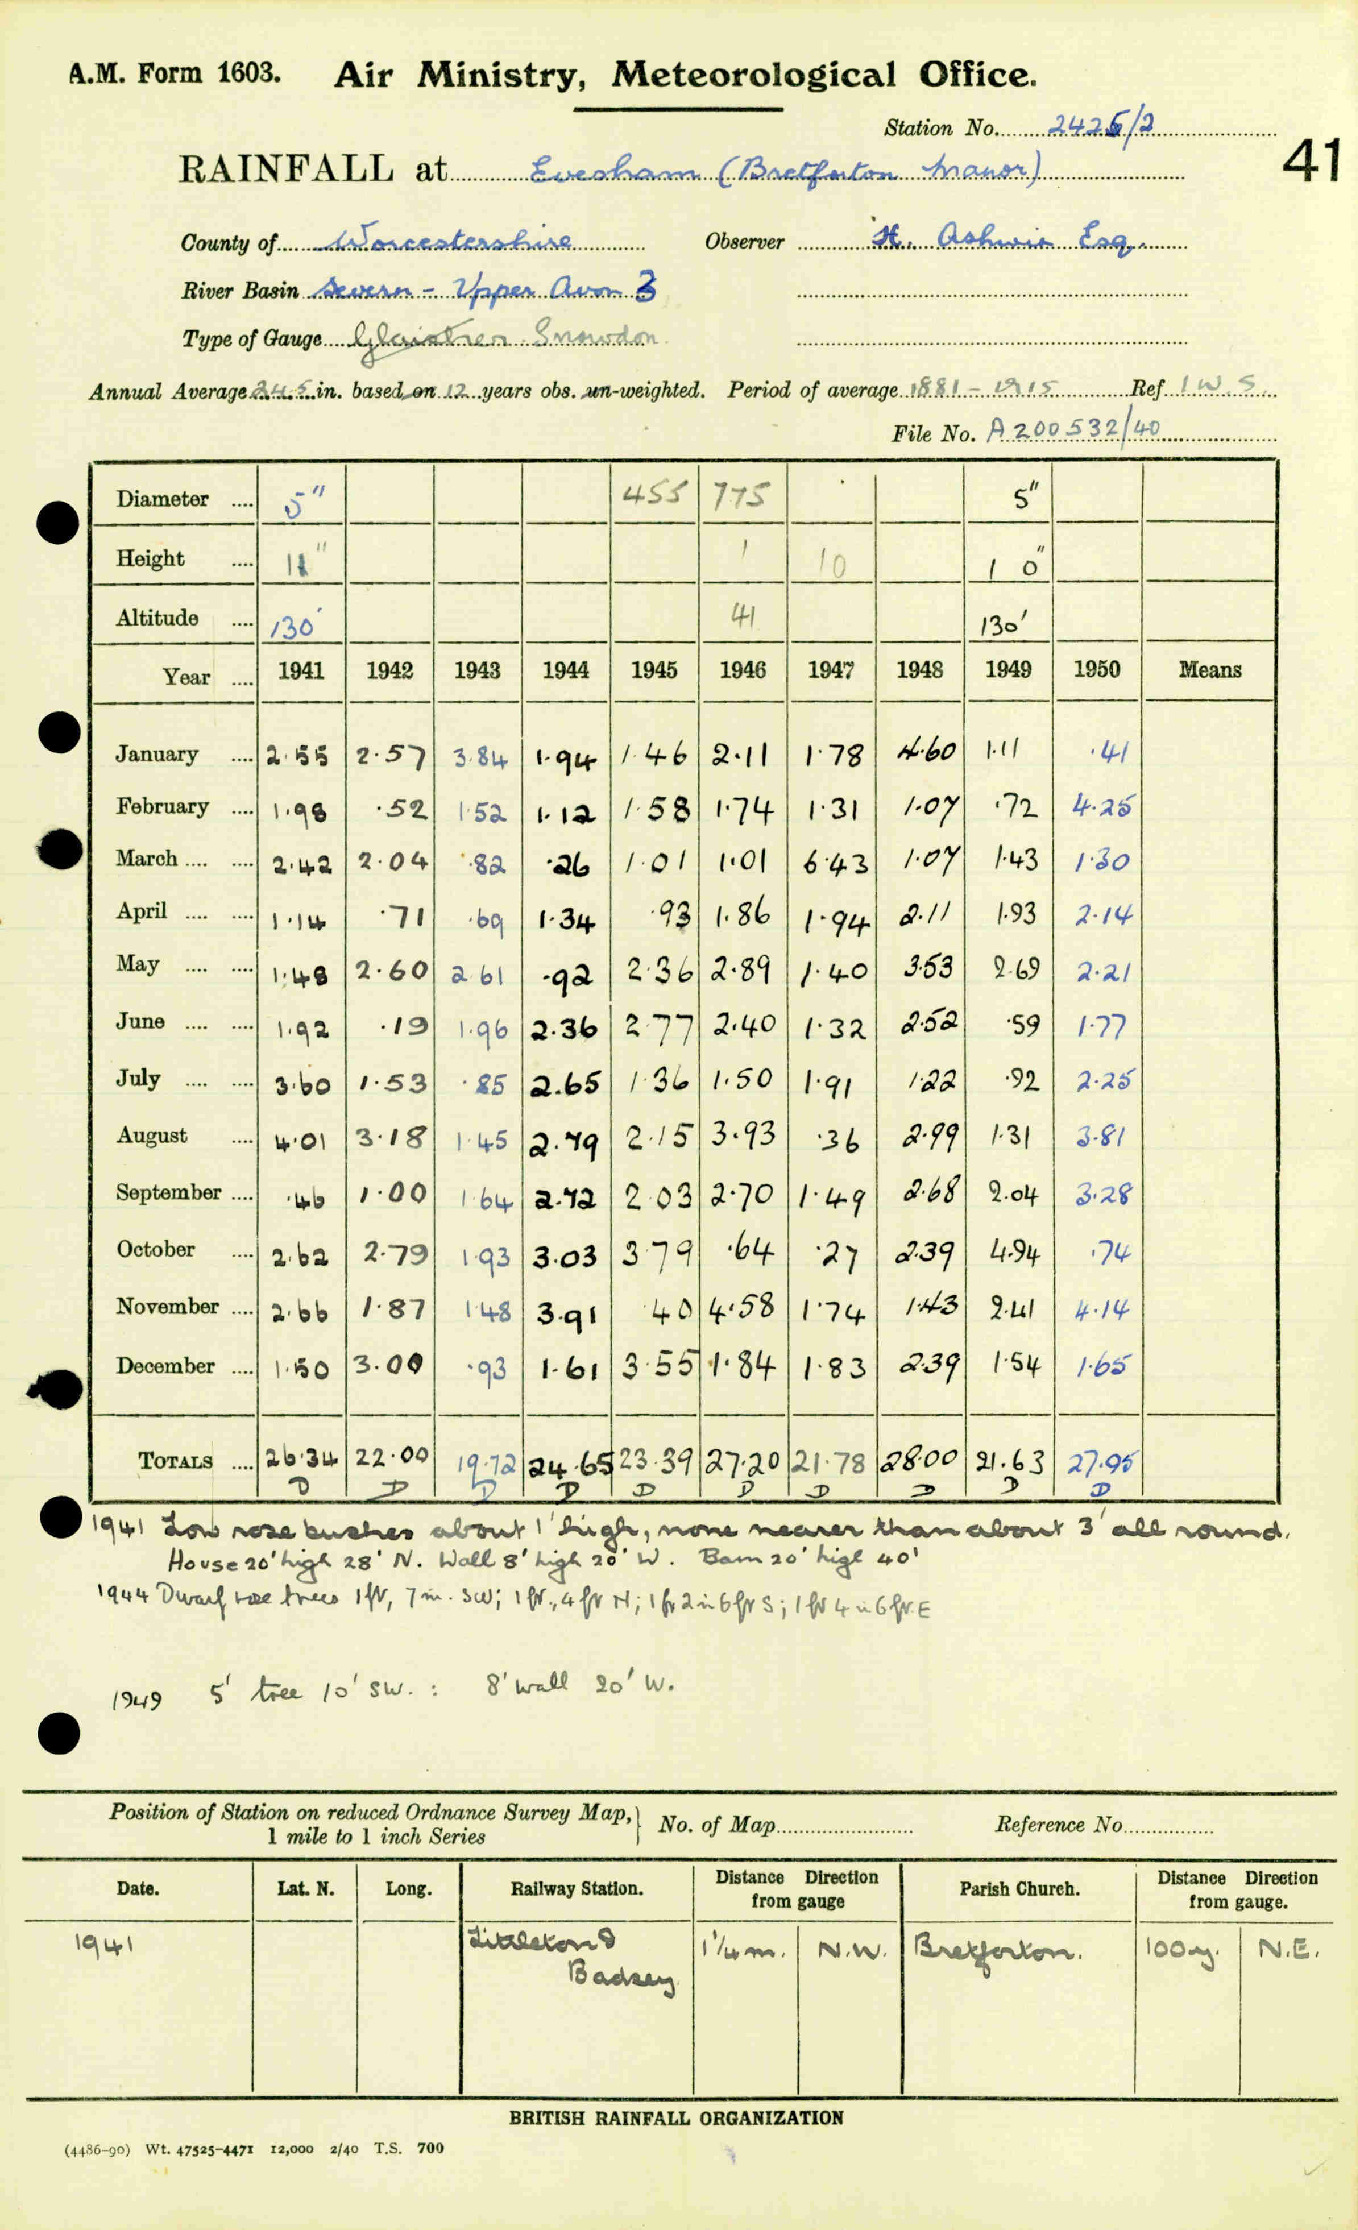 A.M. Form 1603. Air Ministry, Meteorological Office.
Station No. 2425/2
41
RAINFALL at Evesham (Bretforton Manor)
County of Worcestershire Observer H. Ashwin Esq.
River Basin Severn - Upper Avon 3
Type of Gauge Glaisher Snowdon
Annual Average 24.5 in. based on 12 years obs. un-weighted. Period of average 1881-1915 Ref I.W.S.
File No. A200532/40
Diameter .... 5" 455 775 5"
Height .... 11" 1 10 10"
Altitude .... 130' 41 130'
Year .... 1941 1942 1943 1944 1945 1946 1947 1948 1949 1950 Means
January .... 2.55 2.57 3.84 1.94 1.46 2.11 1.78 4.60 1.11 .41
February .... 1.98 .52 1.52 1.12 1.58 1.74 1.31 1.07 .72 4.25
March .... .... 2.42 2.04 .82 .26 1.01 1.01 6.43 1.07 1.43 1.30
April .... .... 1.14 .71 .69 1.34 .93 1.86 1.94 2.11 1.93 2.14
May .... .... 1.48 2.60 2 61 .92 2.36 2.89 1.40 3.53 2.69 2.21
June .... .... 1.92 .19 1.96 2.36 2.77 2.40 1.32 2.52 .59 1.77
July .... .... 3.60 1.53 .85 2.65 1.36 1.50 1.91 1.22 .92 2.25
August .... 4.01 3.18 1.45 2.79 2.15 3.93 .36 2.99 1.31 3.81
September .... .46 1.00 1.64 2.72 2 03 2.70 1.49 2.68 2.04 3.28
October .... 2.62 2.79 1.93 3.03 3.79 .64 .27 2.39 4.94 .74
November .... 2.66 1.87 1.48 3.91 40 4.58 1.74 1.43 2.41 4.14
December .... 1.50 3.00 .93 1.61 3.55 1.84 1.83 2.39 1.54 1.65
TOTALS .... 26.34 22.00 19.72 24.65 23.39 27.20 21.78 28.00 21.63 27.95
D D D D D D D D D D
1941 Low rose bushes about 1' high, none nearer than about 3' all round.
House 20' high 28' N. Wall 8' high 20' W. Barn 20' high 40'
1944 Dwarf rose trees 1ft, 7in. SW; 1ft., 4ft N; 1ft 2in 6ft S; 1ft 4in 6ft E
1949 5' tree 10' SW. : 8' wall 20' W.
Position of Station on reduced Ordnance Survey Map, 1 mile to 1 inch Series No. of Map Reference No.
Date. Lat. N. Long. Railway Station. Distance Direction from gauge Parish Church. Distance Direction from gauge.
1941 Littleton & Badsey 1 1/4 m. N.W. Bretforton. 100 y. N.E.
BRITISH RAINFALL ORGANIZATION
(4486-90) Wt. 47525-4471 12,000 2/40 T.S. 700